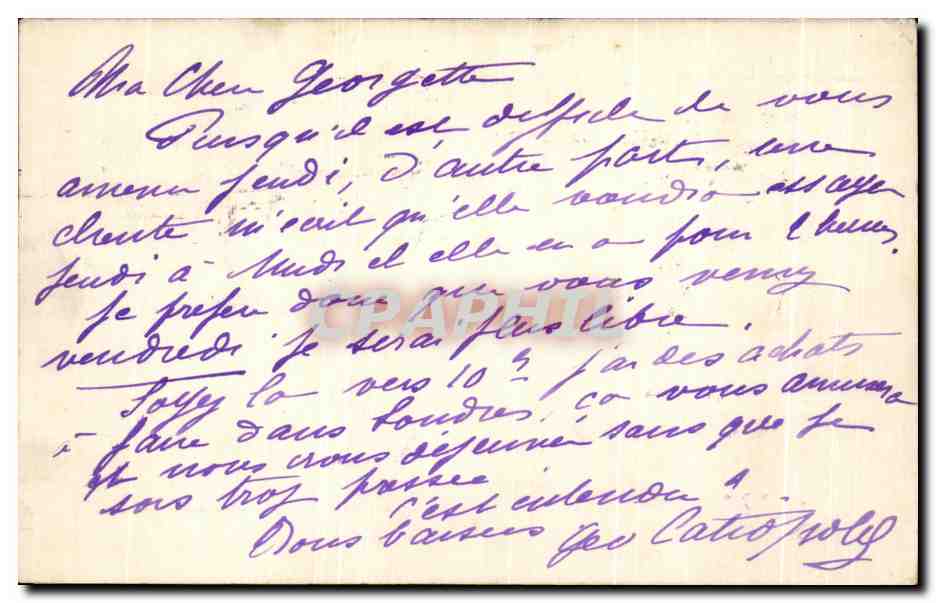 Ma Chere Georgette
Puisqu'il est difficile de vous
amener Jeudi, d'autre part, une
cliente m'écrit qu'elle voudra essayer
Jeudi à Midi et elle en a pour 2 heures.
Je prefere donc que vous veniez
vendredi je serai plus libre.
Soyez la vers 10 h j'ai des achats
à faire dans Londres, ça vous amusera
et nous irons déjeuner sans que je
sois trop pressée
c'est entendu
Bons baisers Geo
CPAPHIL